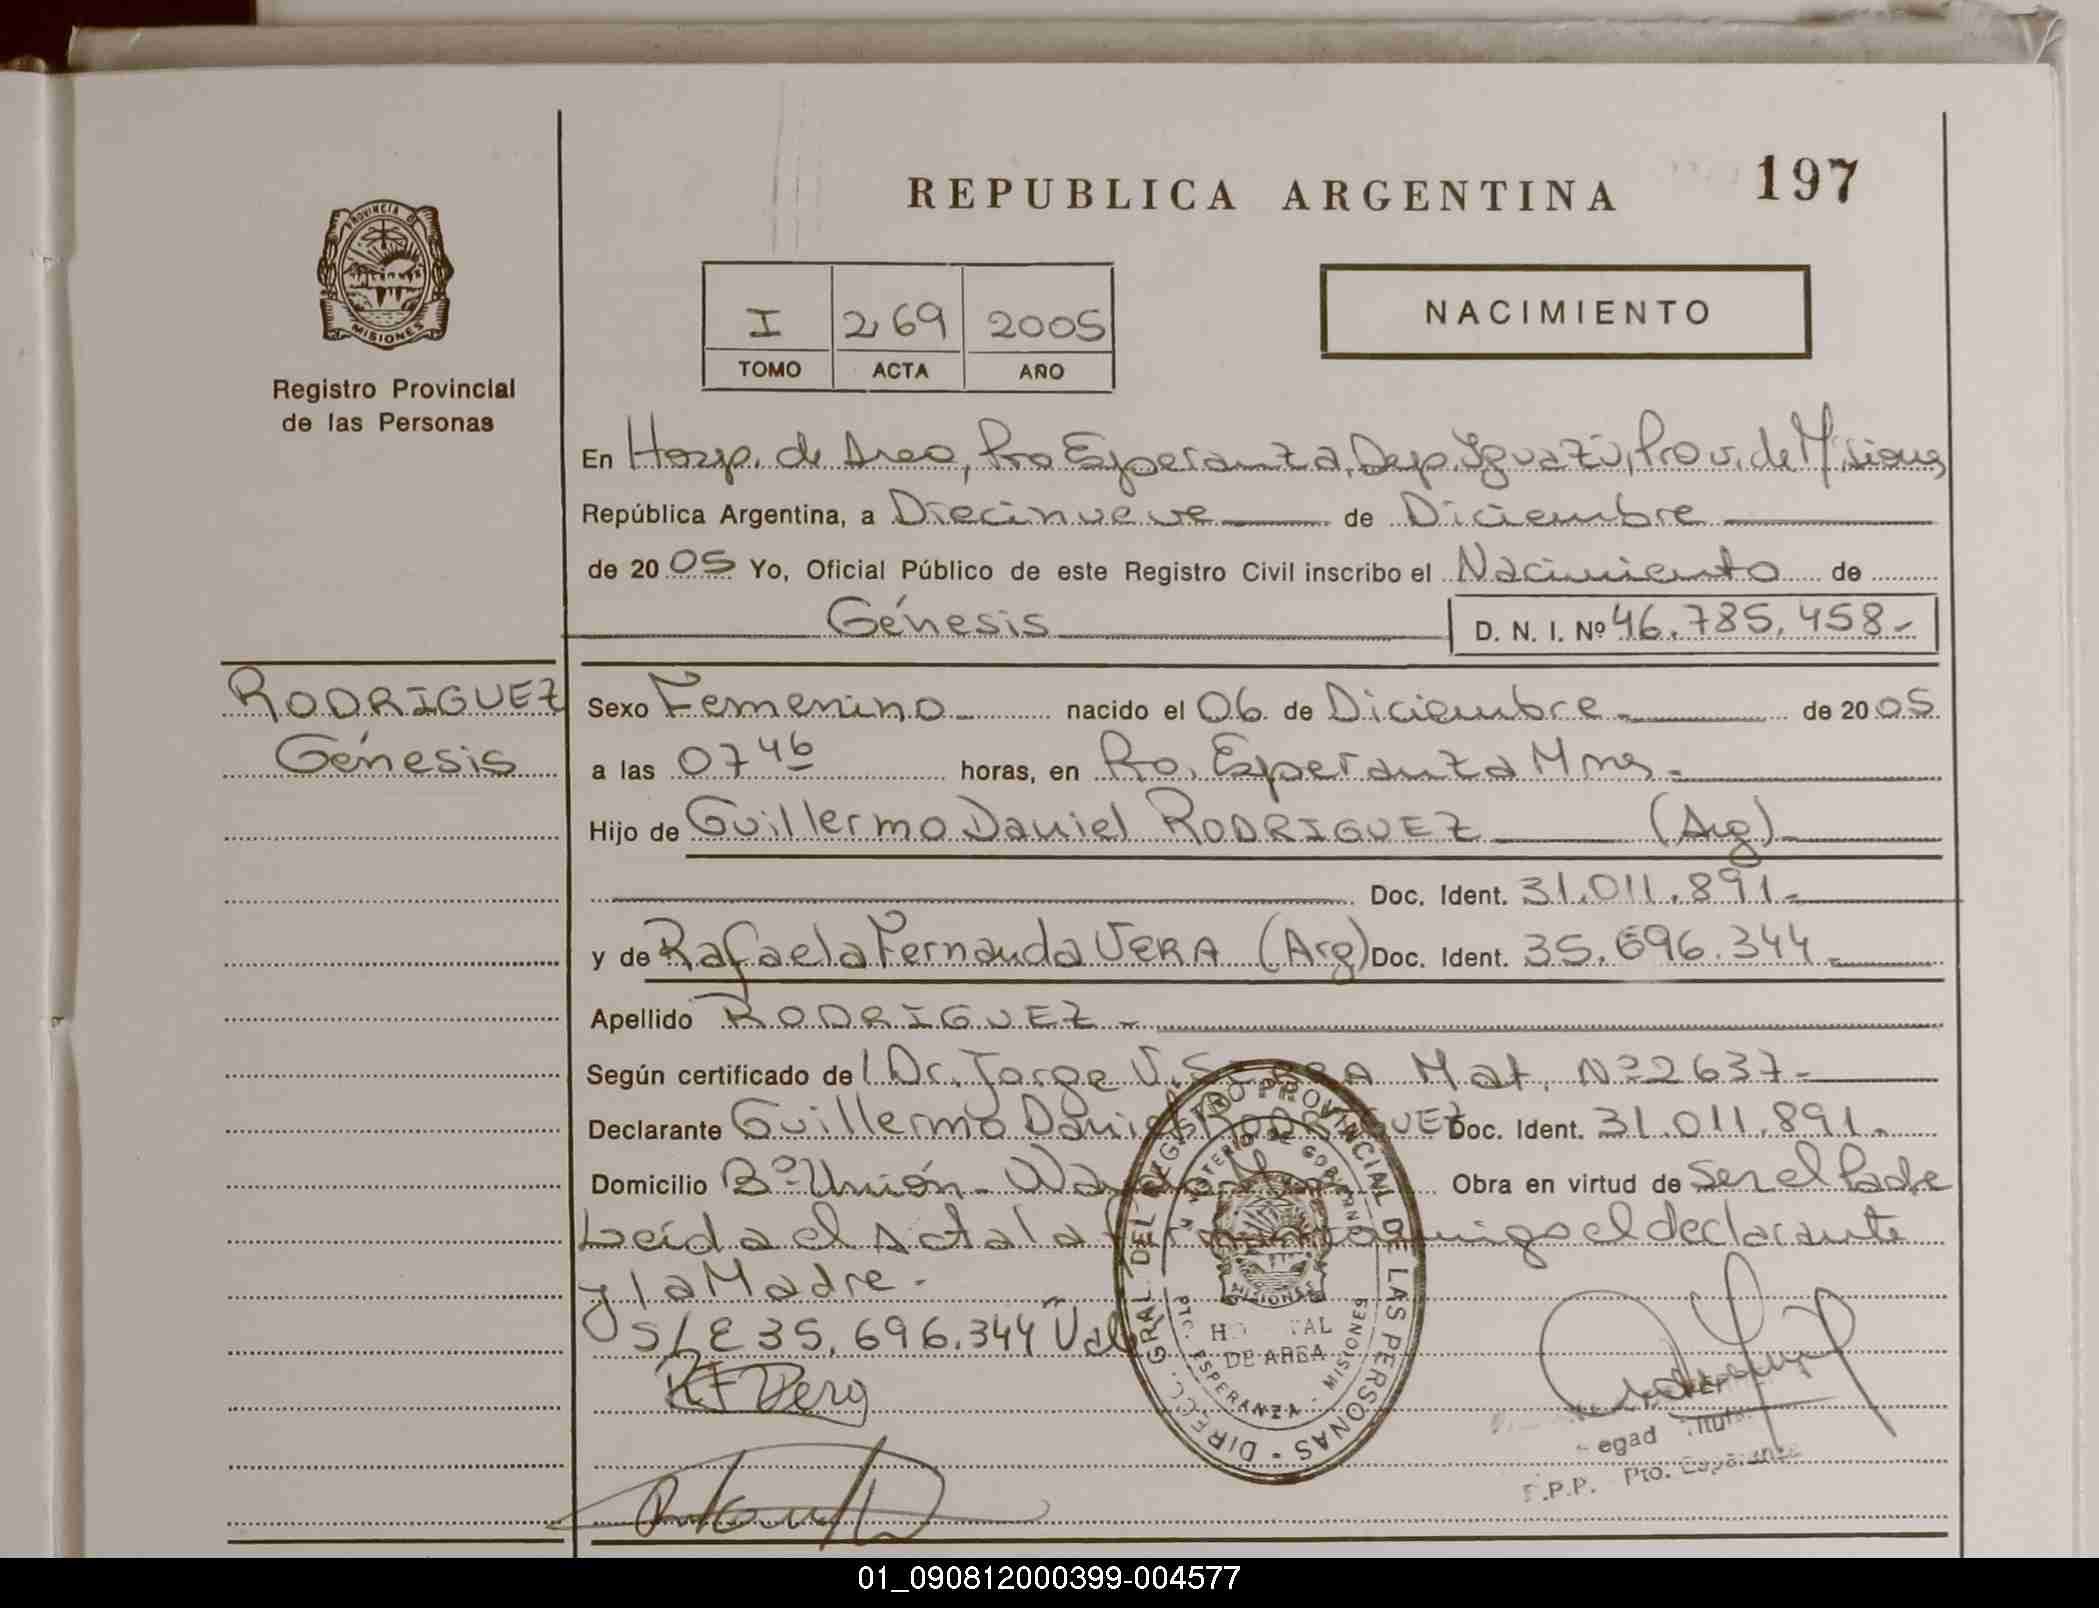 REPUBLICA ARGENTINA 197
PROVINCIA D MISIONES
Registro Provincial
de las Personas
I 269 2005
TOMO ACTA AÑO
NACIMIENTO
En Hosp. de Area, Pto Esperanza, Dep. Iguazú, Prov. de Misiones
República Argentina, a Diecinueve de Diciembre
de 2005 Yo, Oficial Público de este Registro Civil inscribo el Nacimiento de
Génesis D. N. I. Nº 46.785.458.-
RODRIGUEZ
Génesis
Sexo Femenino nacido el 06 de Diciembre.- de 2005
a las 07 46 horas, en Pto. Esperanza Mnes.-
Hijo de Guillermo Daniel RODRIGUEZ (Arg)
Doc. Ident. 31.011.891.-
y de Rafaela Fernanda VERA (Arg) Doc. Ident. 35.696.344.-
Apellido RODRIGUEZ.-
Según certificado de l Dr. Jorge V. Mat. Nº 2637.-
Declarante Guillermo Daniel RODRIGUEZ Doc. Ident. 31.011.891.-
Domicilio Bº Unión - Wanda Obra en virtud de Ser el Padre
Leída el Acta la conmigo el declarante
y la Madre.-
S/E 35.696.344 Vale
RF Vera
DIRECC. GRAL. DEL REGISTRO PROVINCIAL DE LAS PERSONAS
MINISTERIO DE GOBIERNO
MISIONES
HOSPITAL
DE AREA
PTO. ESPERANZA - MISIONES
Pto. Esperanza
01_090812000399-004577